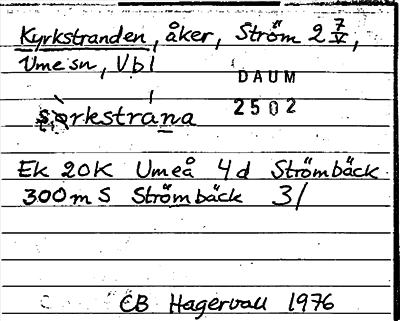 Kyrkstranden, åker, Ström 2 7/V,
Umesn, Vbl
DAUM
2502
Ek 20K Umeå 4d Strömbäck
300m S Strömbäck 3/
EB Hagervall 1976